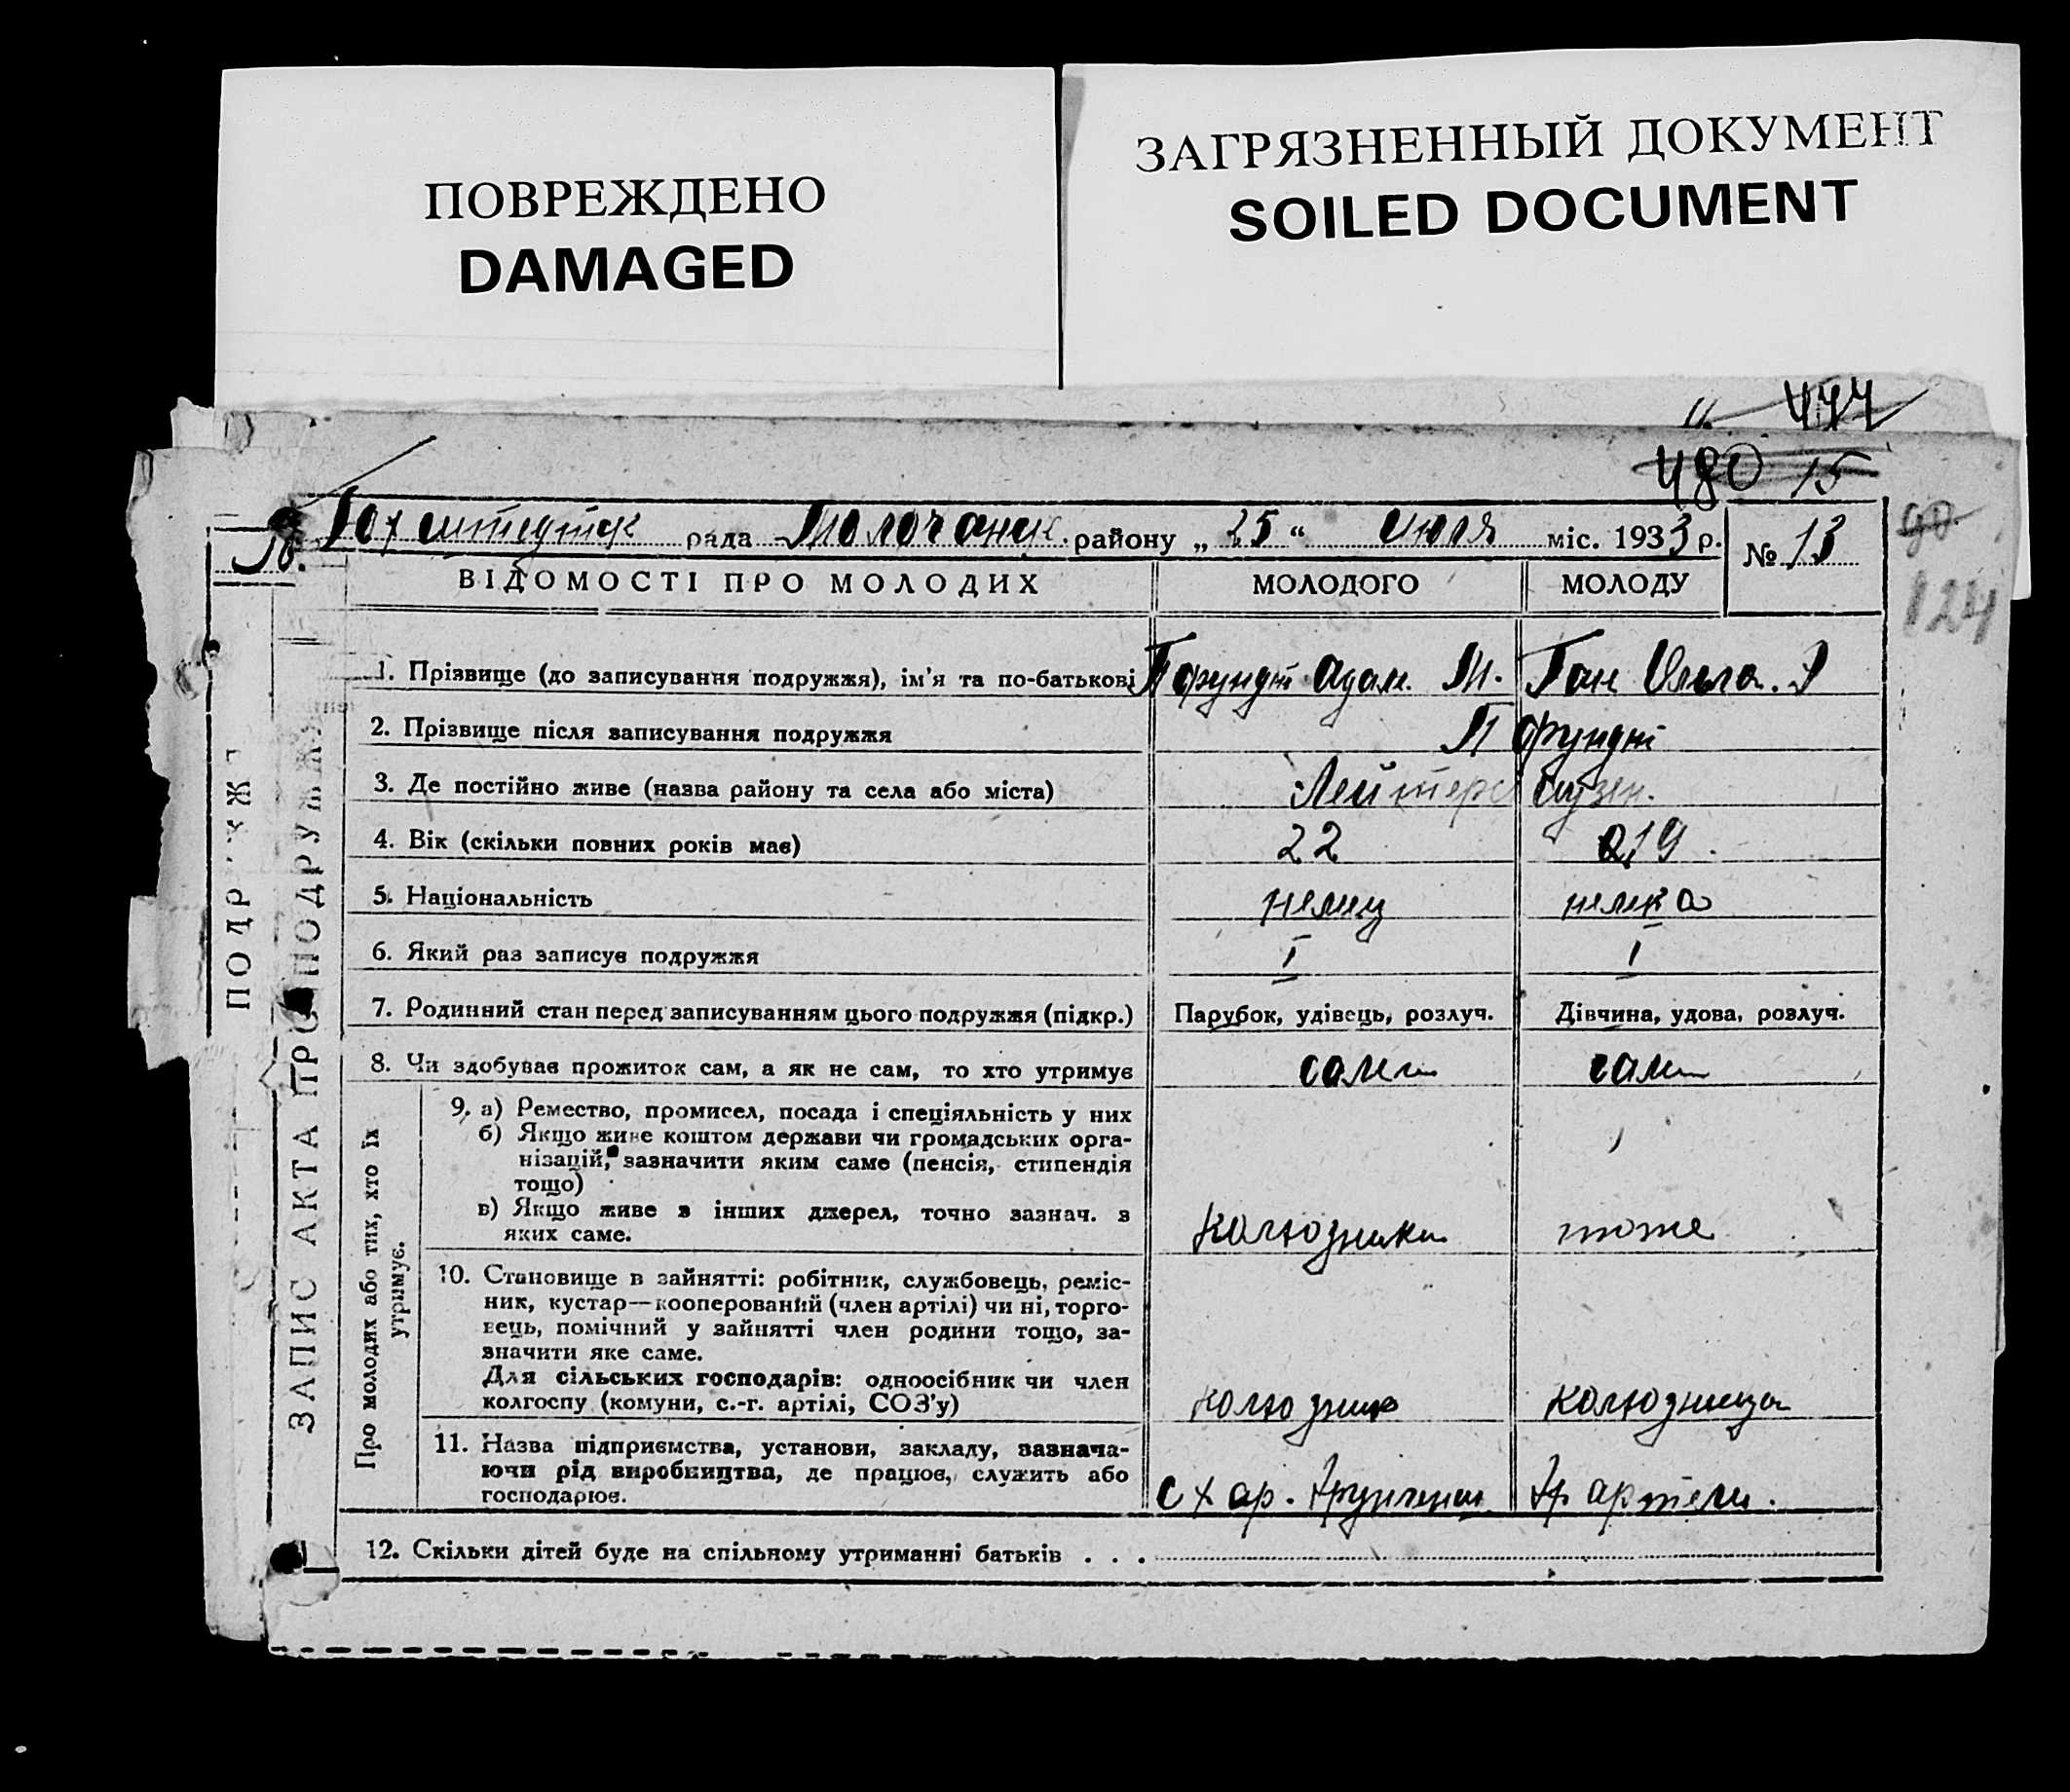 ПОВРЕЖДЕНО
DAMAGED
ЗАГРЯЗНЕННЫЙ ДОКУМЕНТ
SOILED DOCUMENT
480 15
90
124
Гохштедтск рада Молочанск. району „ 25 “ июля міс. 1933 р. № 13
ВІДОМОСТІ ПРО МОЛОДИХ МОЛОДОГО МОЛОДУ
1. Прізвище (до записування подружжя), ім'я та по-батькові Пфундт Адам. М. Ган Ольга.
2. Прізвище після записування подружжя Пфундт
3. Де постійно живе (назва району та села або міста)
4. Вік (скільки повних років має) 22 19
5. Національність немец немка
6. Який раз записує подружжя I I
7. Родинний стан перед записуванням цього подружжя (підкр.) Парубок, удівець, розлуч. Дівчина, удова, розлуч.
8. Чи здобував прожиток сам, а як не сам, то хто утримує сами сами
9. а) Ремество, промисел, посада і спеціяльність у них
б) Якщо живе коштом держави чи громадських орга-
нізацій, зазначити яким саме (пенсія, стипендія
тощо)
в) Якщо живе з інших джерел, точно зазнач. з
яких саме. тоже
10. Становище в зайнятті: робітник, службовець, реміс-
ник, кустар—кооперований (член артілі) чи ні, торго-
вець, помічний у зайнятті член родини тощо, за-
значити яке саме.
Для сільських господарів: одноосібник чи член
колгоспу (комуни, с.-г. артілі, СОЗ'у)
11. Назва підприємства, установи, закладу, зазнача-
ючи рід виробництва, де працює, служить або
господарює. с х ар. артели.
12. Скільки дітей буде на спільному утриманні батьків . . .
Про молодих або тих, хто їх
утримує.
ЗАПИС АКТА ПРО ПОДРУЖЖЯ
ПОДРУЖЖ